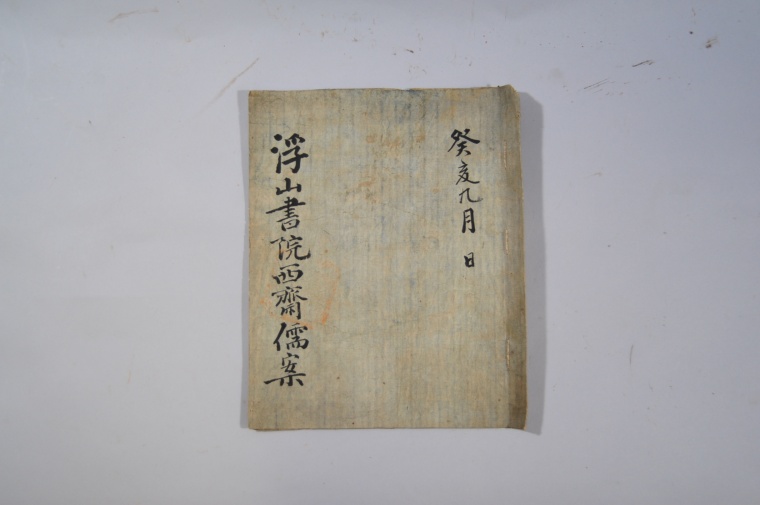 癸亥九月 日
浮山書院西齋儒案